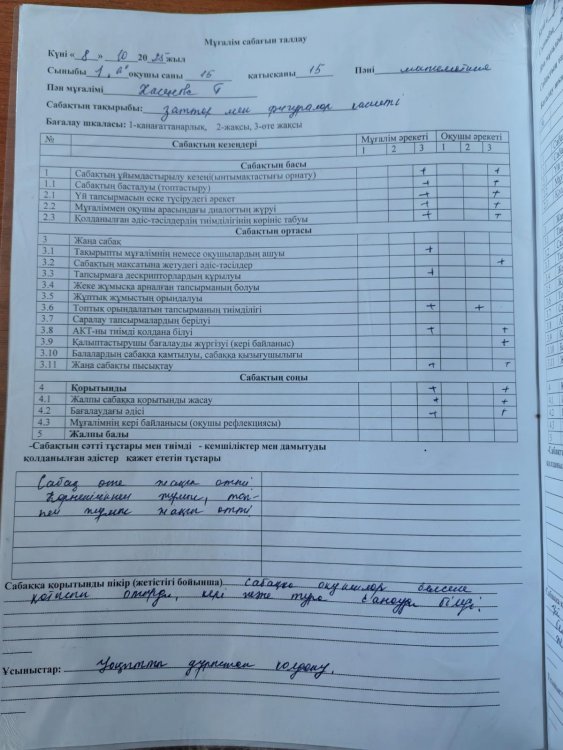 Мұғалім сабағын талдау
Күні « 8 » 10 20 25 жыл
Сыныбы 1 "а" оқушы саны 15 қатысқаны 15 Пәні математика
Пән мұғалімі
Сабақтың тақырыбы: заттар мен фигуралар қасиеті
Бағалау шкаласы: 1-қанағаттанарлық, 2-жақсы, 3-өте жақсы
№ Сабақтың кезеңдері Мұғалім әрекеті Оқушы әрекеті
1 2 3 1 2 3
Сабақтың басы
1 Сабақтың ұйымдастырылу кезеңі(ынтымақтастығы орнату) + +
1.1 Сабақтың басталуы (топтастыру) + +
2.1 Үй тапсырмасын еске түсірудегі әрекет + +
2.2 Мұғаліммен оқушы арасындағы диалогтың жүруі + +
2.3 Қолданылған әдіс-тәсілдердің тиімділігінің көрініс табуы + +
Сабақтың ортасы
3 Жаңа сабақ
3.1 Тақырыпты мұғалімнің немесе оқушылардың ашуы +
3.2 Сабақтың мақсатына жетудегі әдіс-тәсілдер +
3.3 Тапсырмаға дескрипторлардың құрылуы +
3.4 Жеке жұмысқа арналған тапсырманың болуы
3.5 Жұптық жұмыстың орындалуы
3.6 Топтық орындалатын тапсырманың тиімділігі + +
3.7 Саралау тапсырмалардың берілуі
3.8 АКТ-ны тиімді қолдана білуі + +
3.9 Қалыптастырушы бағалауды жүргізуі (кері байланыс) +
3.10 Балалардың сабаққа қамтылуы, сабаққа қызығушылығы
3.11 Жаңа сабақты пысықтау + +
Сабақтың соңы
4 Қорытынды + +
4.1 Жалпы сабаққа қорытынды жасау + +
4.2 Бағалаудағы әдісі + +
4.3 Мұғалімнің кері байланысы (оқушы рефлекциясы)
5 Жалпы балы
-Сабақтың сәтті тұстары мен тиімді - кемшіліктер мен дамытуды
қолданылған әдістер қажет ететін тұстары
Сабақ өте жақсы өтті.
жұмыс, топ-
пен жұмыс жақсы өтті.
Сабаққа қорытынды пікір (жетістігі бойынша) Сабаққа оқушылар белсене
қатысып отырды, кері және тура санауды біледі.
Ұсыныстар: Уақытты дұрыстап қолдану.